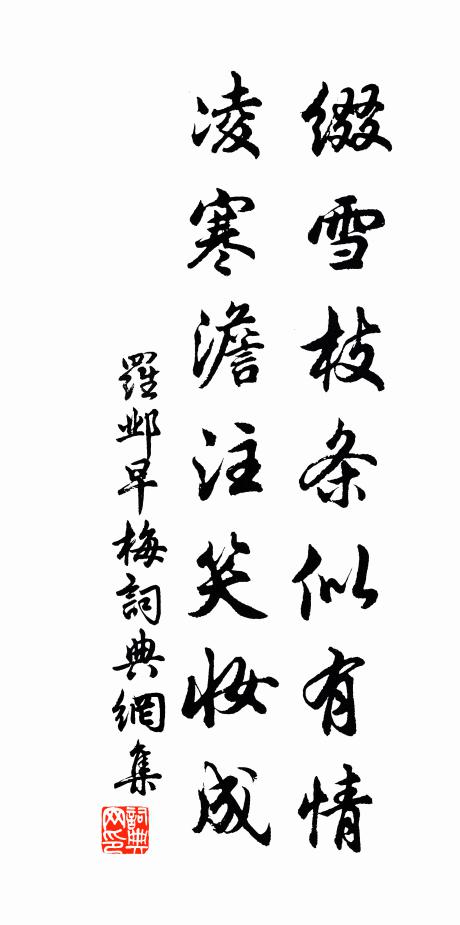 缀雪枝条似有情
凌寒澹注笑妆成
羅邺早梅詞典網集
詞典
网印